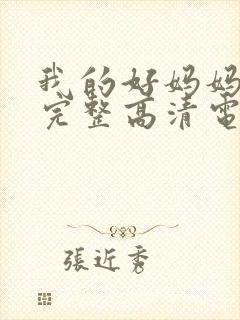 我的好妈妈
完整高清電
張近秀